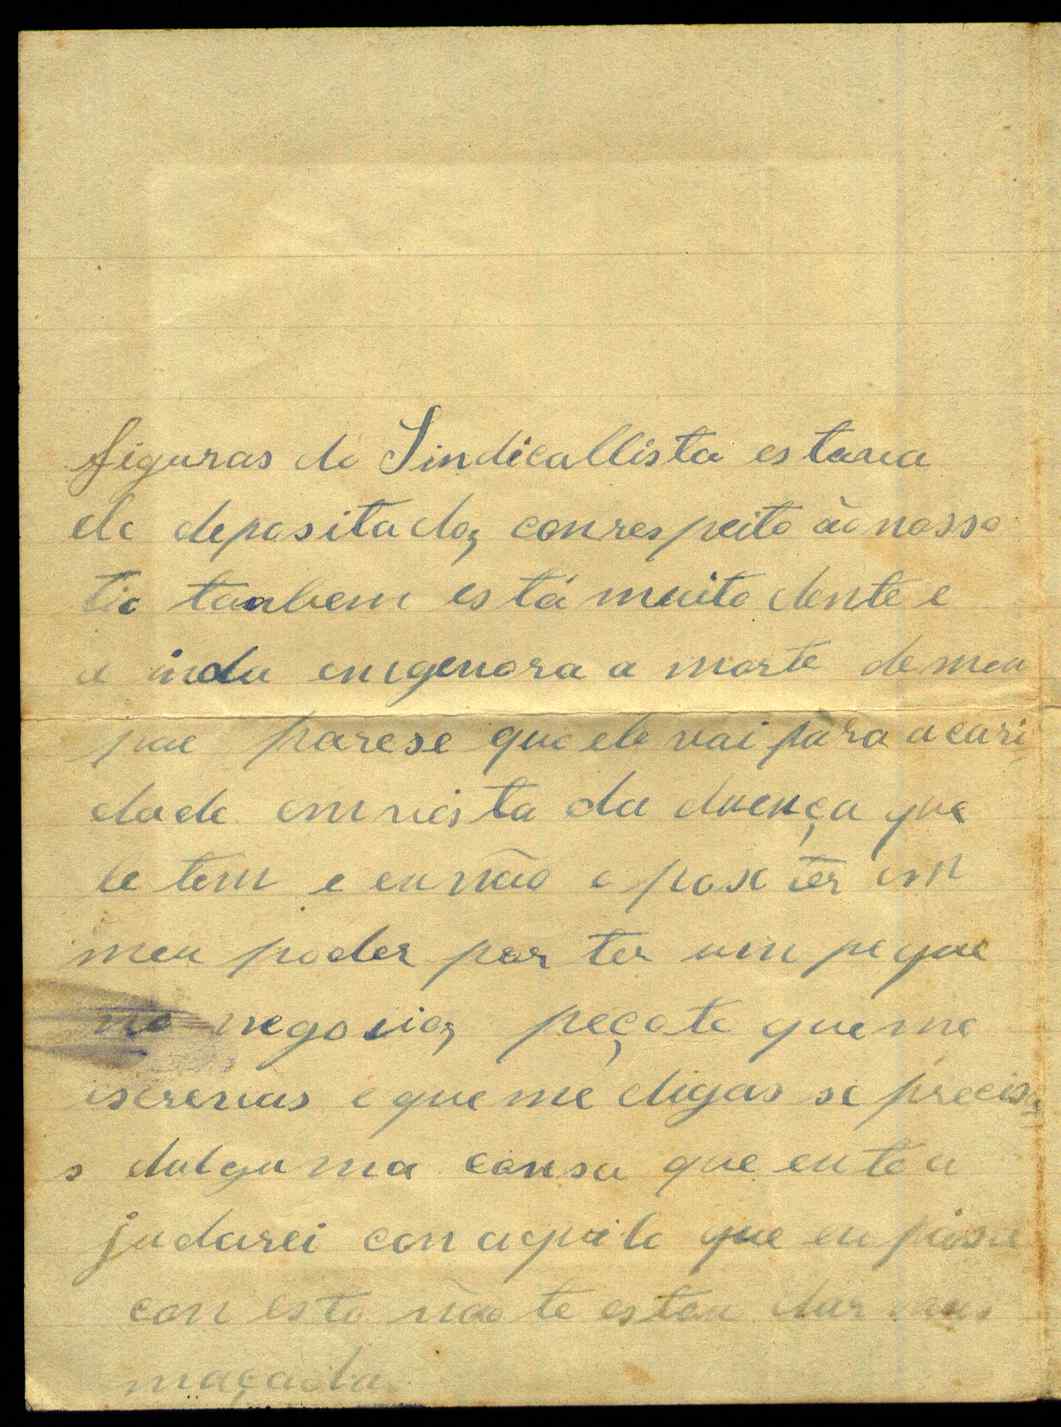 figuras do Sindicallista estava
ele depositado, conrespeito ão nosso
tio taabem está muito dente e
a inda emgenora a morte de meu
pae parese que ele vai para a cari
dade em vista da duença que
le tem e eu não o pose ter em
meu poder por ter um peque
no negosio, peçote que me
iscrevas e que me digas se precisa
s dalguma cousa que eu te a
judarei con aquilo que eu posa
con esto não te estou dar mas
maçada